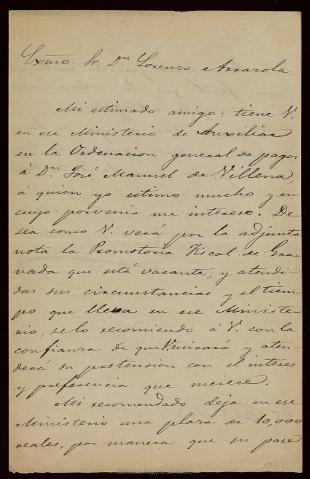 Exmo. Sr. Dn. Lorenzo Arrazola
Mi estimado amigo: tiene V.
en ese Ministerio de Auxiliar
en la Ordenacion general de pagos
á Dn. José Manuel de Villena,
á quien yo estimo mucho y en
cuyo porvenir me intereso. De-
sea como V. verá por la adjunta
nota la Promotoria Fiscal de Gra-
nada que está vacante, y atendi-
das sus circunstancias y el tiem-
po que lleva en ese Ministe-
rio, se lo recomiendo á V. con la
confianza de que mirará y aten-
derá su pretension con el interes
y preferencia que merece.
Mi recomendado deja en ese
Ministerio una plaza de 10,000
reales, por manera que su pase